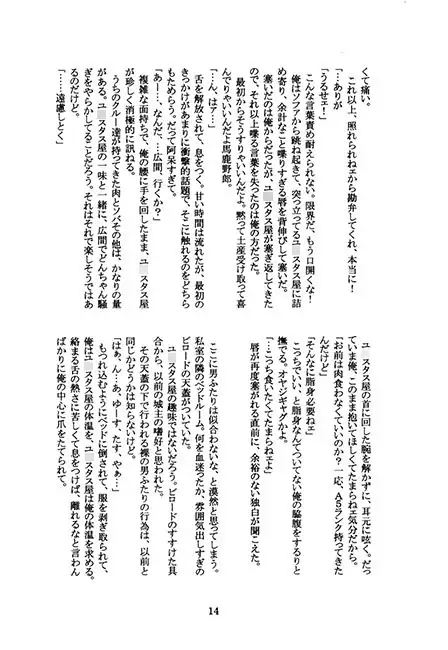 くて痛い。
　これ以上、照れられねェから勘弁してくれ、本当に！
「……ありが
「うるせェ！」
　こんな言葉責め耐えられない。限界だ、もう口開くな！
　俺はソファから跳ね起きて、突っ立ってるユ　スタス屋に詰
め寄り、余計なこと喋りすぎる唇を背伸びして塞いだ。
　塞いだのは俺からだったが、ユ　スタス屋が塞ぎ返してきた
ので、それ以上喋る言葉を失ったのは俺の方だった。
　最初からそうすりゃいいんだよ。黙って土産受け取って喜
んでりゃいいんだよ馬鹿野郎。
「…ん、はァ…」
　舌を解放されて、息をつく。甘い時間は流れたが、最初の
きっかけがあまりに衝撃的話題で、そこに触れるのをどちら
もためらう。だって阿呆すぎて。
「あー、なんだ…広間、行くか？」
　複雑な面持ちで、俺の腰に手を回したまま、ユ　スタス屋
が珍しく消極的に訊ねる。
　うちのクルー達が持ってきた肉とソバその他は、かなりの量
がある。ユ　スタス屋の一味と一緒に、広間でどんちゃん騒
ぎをやらかしてることだろう。それはそれで楽しそうではあ
るのだけど。
「……遠慮しとく」
　ユ　スタス屋の首に回した腕を解かずに、耳元に呟く。だっ
ていま俺、このまま抱いてほしくてたまらねェ気分だから。
「お前は肉食わなくていいのか？　一応、A5ランク持ってきた
んだけど」
「そんなに脂身必要ねェ」
　こっちでいい、と脂身なんてついてない俺の脇腹をするりと
撫でる。オヤジギャグかよ。
「…こっち食いたくてたまらねェよ」
　唇が再度塞がれる直前に、余裕のない独白が聞こえた。
　ここに男ふたりは似合わないな、と漠然と思ってしまう。
私室の隣のベッドルーム。何を血迷ったか、雰囲気出しすぎの
ビロードの天蓋がついていた。
　ユ　スタス屋の趣味ではないだろう。ビロードのすすけた具
合から、以前の城主の嗜好と思われた。
　その天蓋の下で行われる裸の男ふたりの行為は、以前と
同じかどうかは知らないけど。
「はぁ、ん…あ、ゆー、すた、すやぁ…」
　もつれ込むようにベッドに倒されて、服を剥ぎ取られて、
俺はユ　スタス屋の体温を、ユ　スタス屋は俺の体温を求める。
絡まる舌の熱さに苦しくて息をつけば、離れるなと言わん
ばかりに俺の中心に爪をたてられて。
14